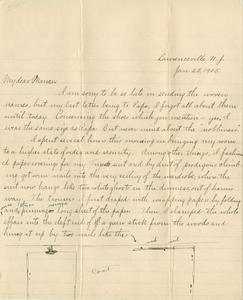 Lawrenceville N.J.
Jan 28, 1905.
My dear Mamma
I am sorry to be so late in sending the woven
names, but my last letter being to Papa, I forgot all about them
until today. Concerning the shoes which you mention - yes, it
was the same size as Papa. But never mind about the
I spent several hours this morning in bringing my room
to a higher state order and security. Among other things, I fashion
ed paper coverings for my suit and by dint of prodigious climb
ing got some nails into the very ceiling of the wardrobe, where the
suit now hangs like two white ghosts in the dimness, out of harm's
way. The trousers I first draped with wrapping paper by folding
and pinning a long sheet of the paper. Then I clamped the whole
affair into the cleft end of a green stick from the woods and
hung it up by two nails like the
Coat